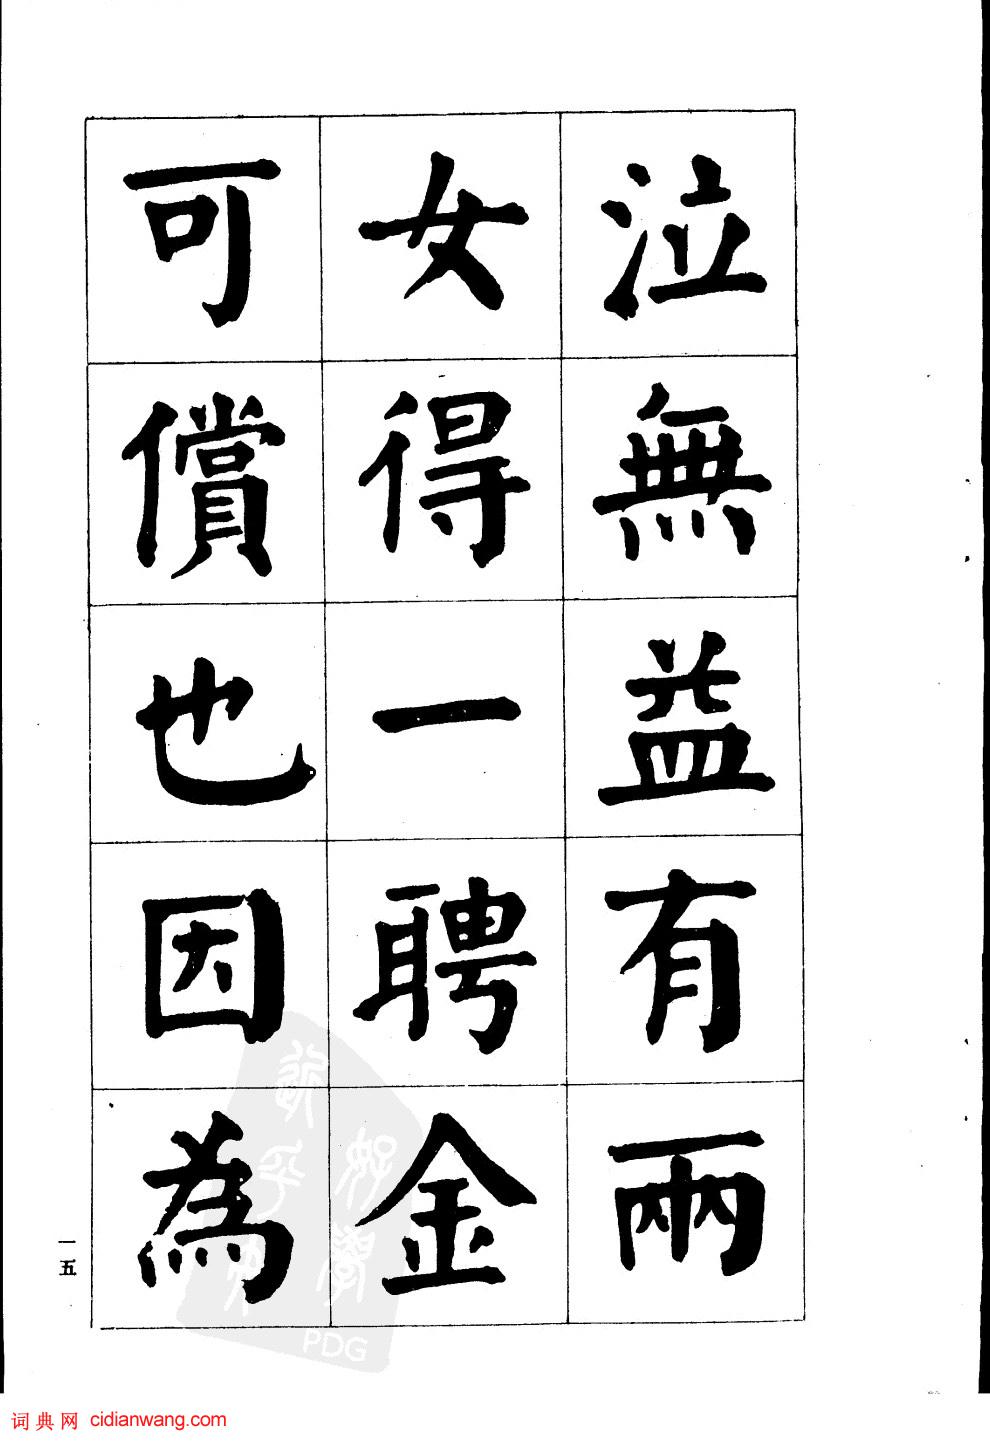 泣無益有兩
女得一聘金
可償也因為
一五
PDG
词典网 cidianwang.com